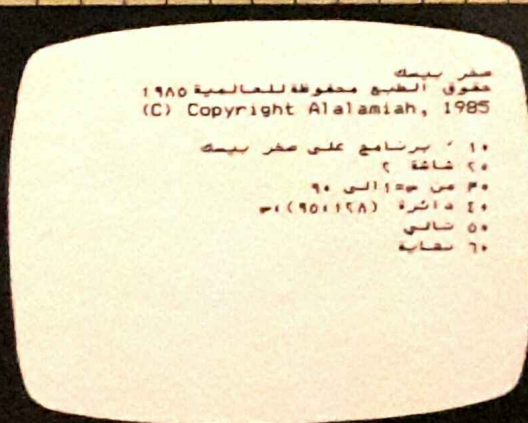 صخر بيسك
حقوق الطبع محفوظة للعالمية ١٩٨٥
(C) Copyright Alalamiah, 1985
١٠ ' برنامج على صخر بيسك
٢٠ شاشة ٢
٣٠ من س=١ الى ٩٠
٤٠ دائرة (١٢٨،٩٥)،س
٥٠ تالي
٦٠ نهاية